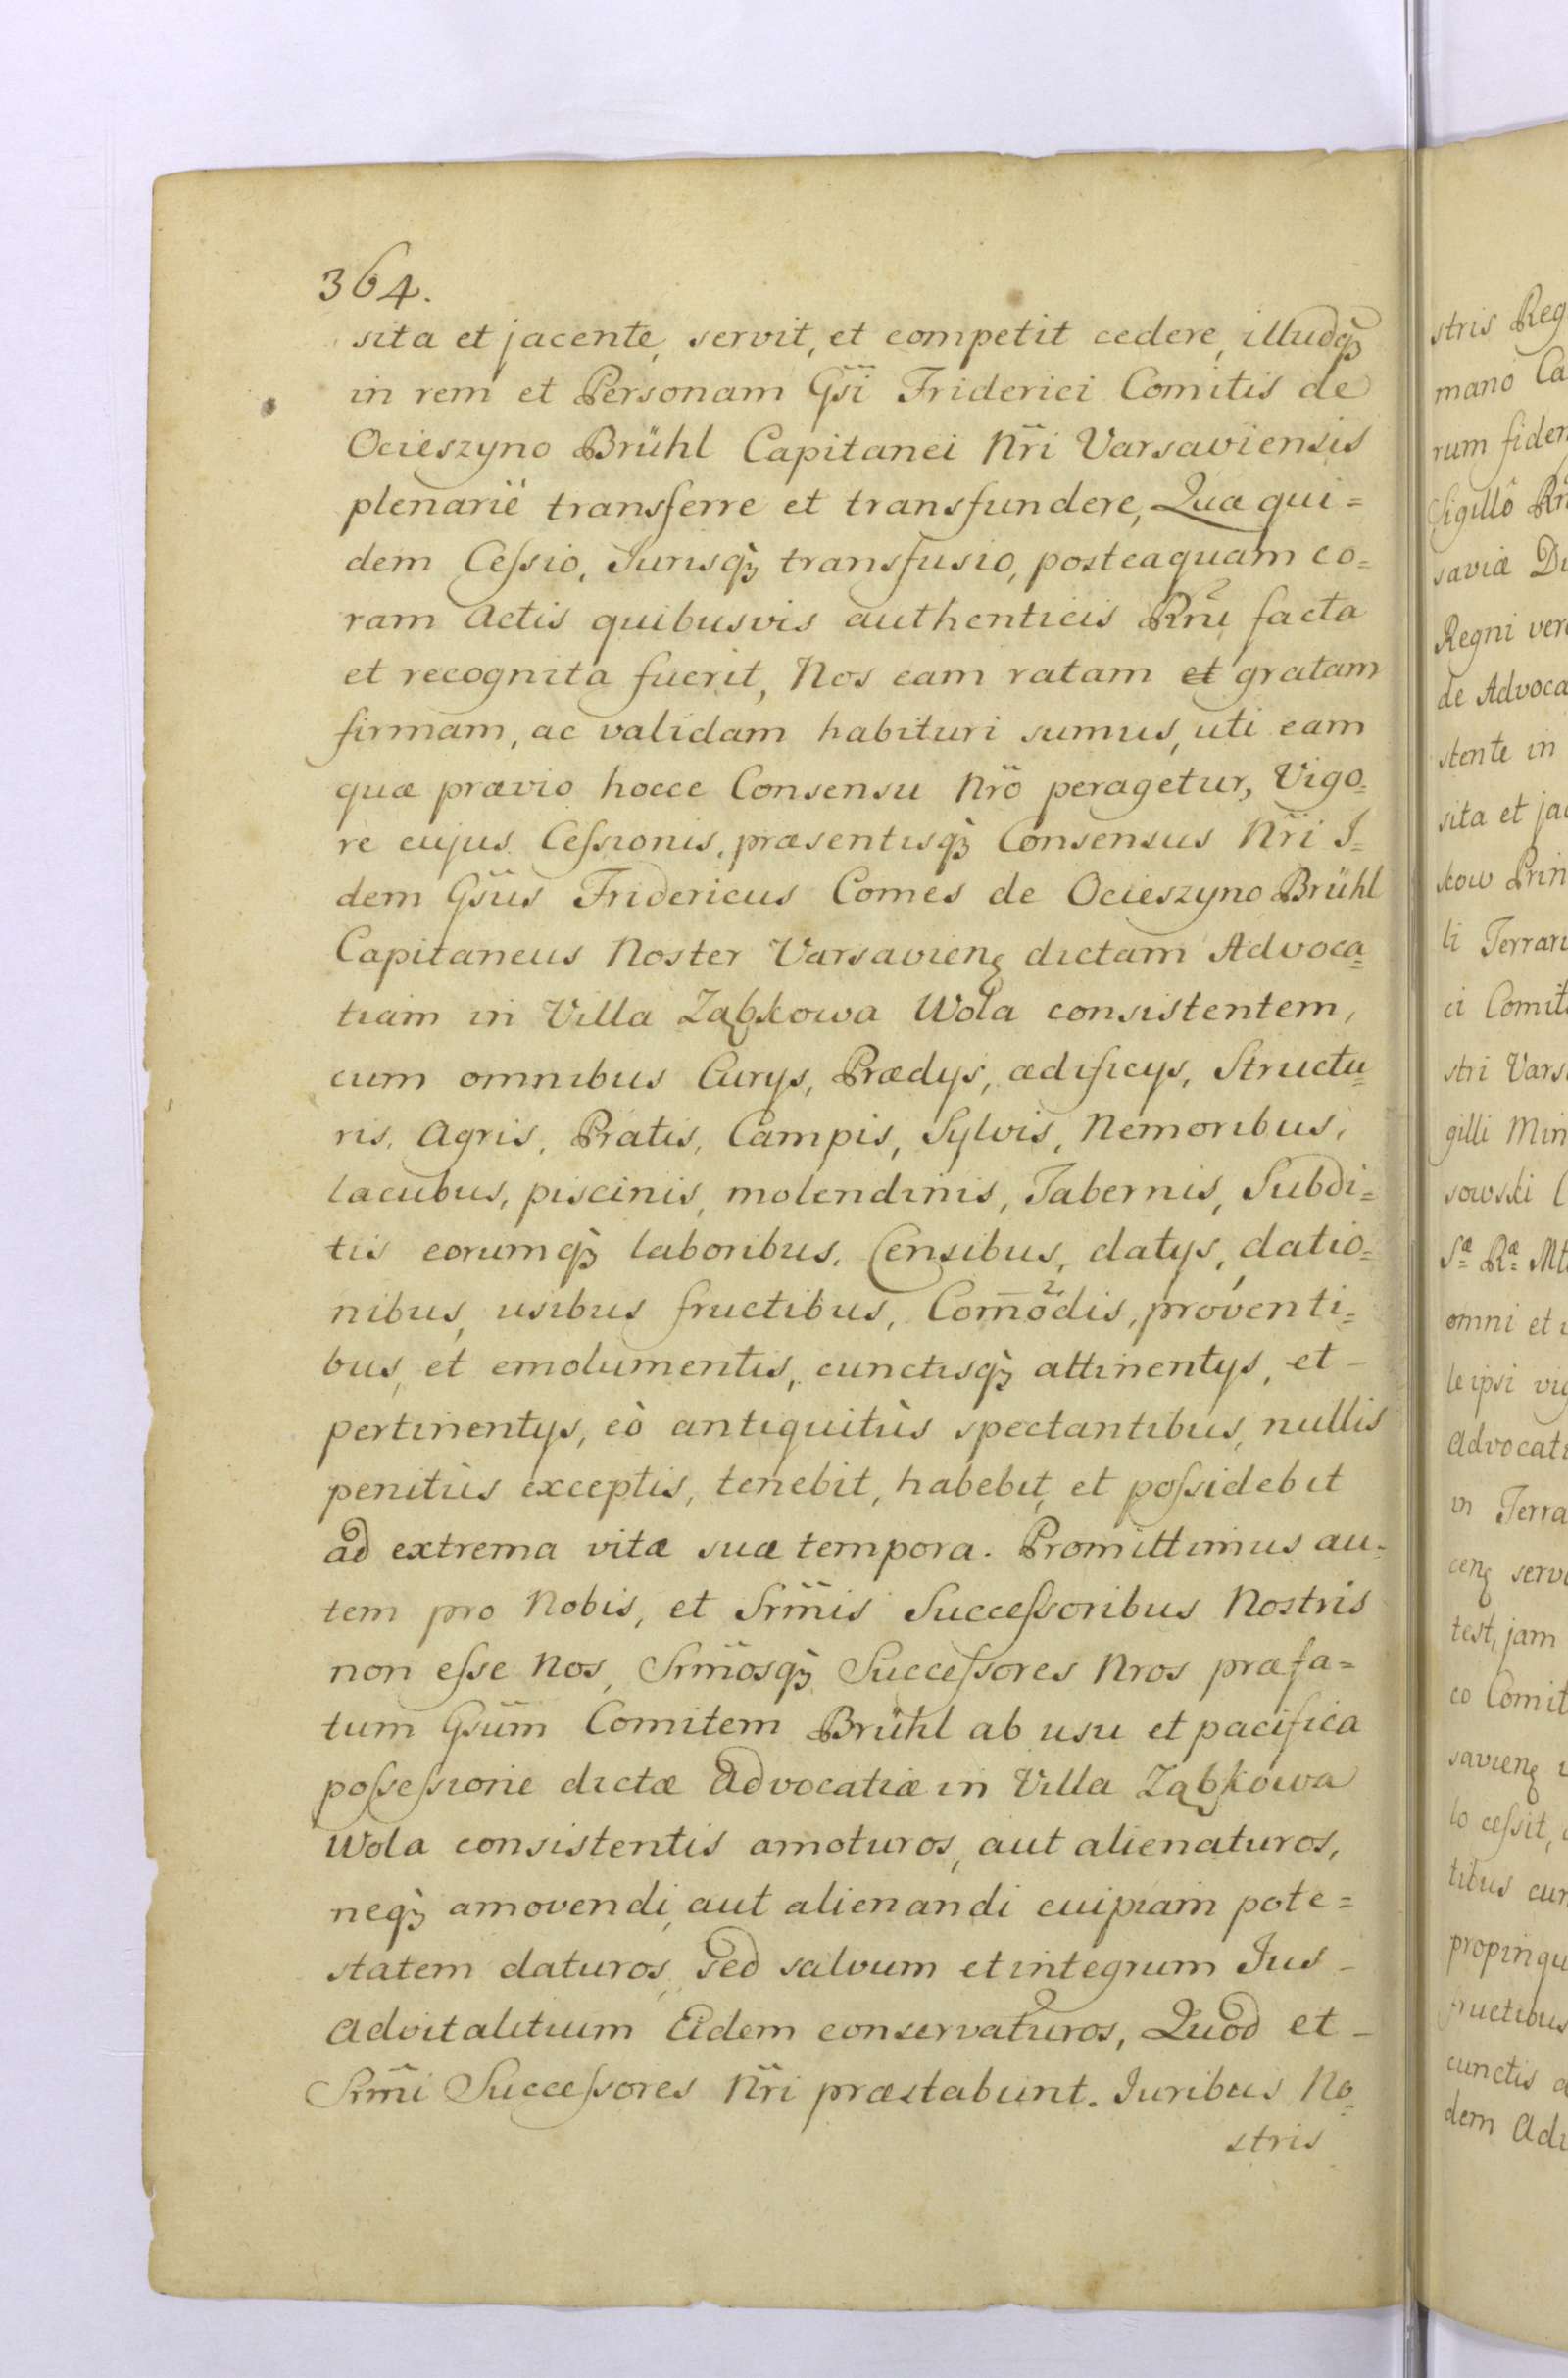 364.
sita et jacente, servit, et competit cedere, illudq̃
in rem et Personam Gsi Friderici Comitis de
Ocieszyno Brühl Capitanei Nr̃i Varsaviensis
plenariè transferre et transfundere, Quæ qui=
dem Cessio, Jurisq̃ transfusio, posteaquam co=
ram Actis quibusvis authenticis Rñi facta
et recognita fuerit, Nos eam ratam et gratam
firmam, ac validam habituri sumus, uti eam
quæ prævio hocce Consensu Nr̃o peragetur, Vigo=
re cujus Cessionis, præsentisq̃ Consensus Nr̃i I=
dem Gsus Fridericus Comes de Ocieszyno Brühl
Capitaneus Noster Varsavieñ dictam Advoca=
tiam in Villa Ząbkowa Wola consistentem,
cum omnibus Curys, Prædys, ædificys, Structu=
ris, Agris, Pratis, Campis, Sylvis, Nemoribus,
lacubus, piscinis, molendinis, Tabernis, Subdi=
tis eorumq̃ laboribus, Censibus, datys, datio=
nibus, usibus fructibus, Com̃odis, proventi=
bus, et emolumentis, cunctisq̃ attinentys, et -
pertinentys, eò antiquitùs spectantibus, nullis
penitùs exceptis, tenebit, habebit, et possidebit
ad extrema vitæ suæ tempora. Promittimus au=
tem pro Nobis, et Srm̃is Successoribus Nostris
non esse Nos, Srm̃osq̃ Successores Nros præfa=
tum Gsum̃ Comitem Brühl ab usu et pacifica
possessione dictæ Advocatiæ in Villa Ząbkowa
Wola consistentis amoturos, aut alienaturos,
neq̃ amovendi, aut alienandi cuipiam pote=
statem daturos, sed salvum et integrum Jus -
Advitalitium Eidem conservaturos, Quod et -
Srm̃i Successores Nr̃i præstabunt. Juribus No=
stris
stris Reg
mano Ca
rum fidem
Sigillô Rn
saviæ Di
Regni vero
de Advoca
stente in
sita et jac
skow Prin
li Terraru
ci Comit
stri Vars
gilli Min
sowski
Sæ Ræ Mt
omni et
le ipsi vig
Advocati
in Terra
ceñ serv
test, jam
co Comit
savieñ
lo cessit,
titus cum
propinqu
fructibus
cunctis a
dem Adv